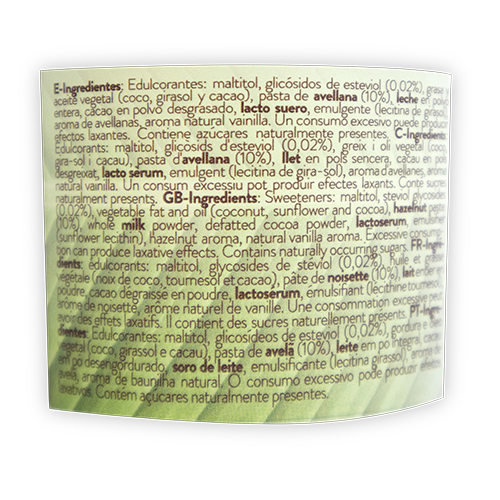 E-Ingredientes: Edulcorantes: maltitol, glicósidos de esteviol (0,02%), grasa y
aceite vegetal (coco, girasol y cacao), pasta de avellana (10%), leche en polvo
entera, cacao en polvo desgrasado, lacto suero, emulgente (lecitina de girasol),
aroma de avellanas, aroma natural vainilla. Un consumo excesivo puede producir
efectos laxantes. Contiene azúcares naturalmente presentes. C-Ingredients:
Edulcorants: maltitol, glicosids d'esteviol (0,02%), greix i oli vegetal (coco,
gira-sol i cacau), pasta d'avellana (10%), llet en pols sencera, cacau en pols
desgreixat, lacto sèrum, emulgent (lecitina de gira-sol), aroma d'avellanes, aroma
natural vainilla. Un consum excessiu pot produir efectes laxants. Conté sucres
naturalment presents. GB-Ingredients: Sweeteners: maltitol, steviol glycosides
(0,02%), vegetable fat and oil (coconut, sunflower and cocoa), hazelnut paste
(10%), whole milk powder, defatted cocoa powder, lactoserum, emulsifier
(sunflower lecithin), hazelnut aroma, natural vanilla aroma. Excessive consump-
tion can produce laxative effects. Contains naturally occurring sugars. FR-Ingré-
dients: édulcorants: maltitol, glycosides de stéviol (0,02%), huile et graisse
vegetale (noix de coco, tournesol et cacao), pâte de noisette (10%), lait entier en
poudre, cacao dégraissé en poudre, lactoserum, emulsifiant (lécithine tournesol),
arome de noisette, arome naturel de vanille. Une consommation excessive peut
avoir des effets laxatifs. Il contient des sucres naturellement presents. PT-Ingre-
dientes: Edulcorantes: maltitol, glicosídeos de esteviol (0,02%), gordura e óleo
vegetal (coco, girassol e cacau), pasta de avelã (10%), leite em po integral, cacau
em po desengordurado, soro de leite, emulsificante (lecitina girassol), aroma de
avelã, aroma de baunilha natural. O consumo excessivo pode produzir efeitos
laxativos. Contém açúcares naturalmente presentes.